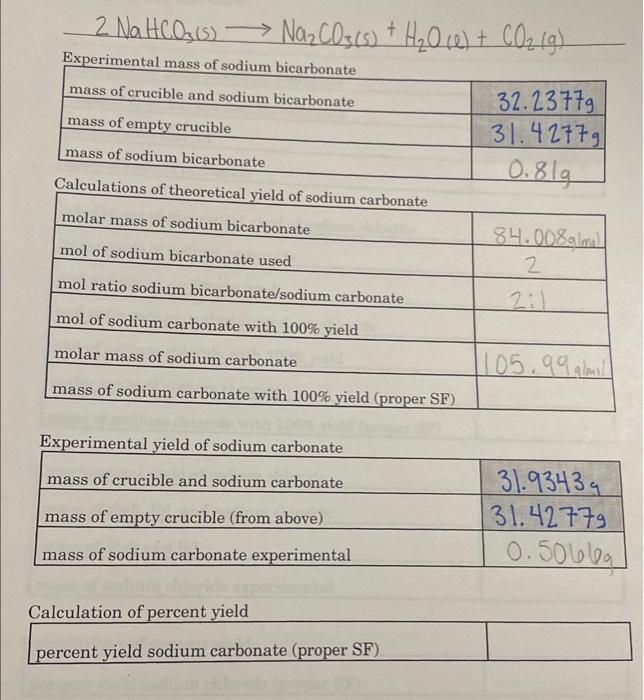 2 NaHCO3(s) → Na2CO3(s) + H2O(l) + CO2(g)
Experimental mass of sodium bicarbonate
mass of crucible and sodium bicarbonate 32.2377g
mass of empty crucible 31.4277g
mass of sodium bicarbonate 0.81g
Calculations of theoretical yield of sodium carbonate
molar mass of sodium bicarbonate 84.008g/mol
mol of sodium bicarbonate used 2
mol ratio sodium bicarbonate/sodium carbonate 2:1
mol of sodium carbonate with 100% yield
molar mass of sodium carbonate 105.99g/mol
mass of sodium carbonate with 100% yield (proper SF)
Experimental yield of sodium carbonate
mass of crucible and sodium carbonate 31.9343g
mass of empty crucible (from above) 31.4277g
mass of sodium carbonate experimental 0.5066g
Calculation of percent yield
percent yield sodium carbonate (proper SF)